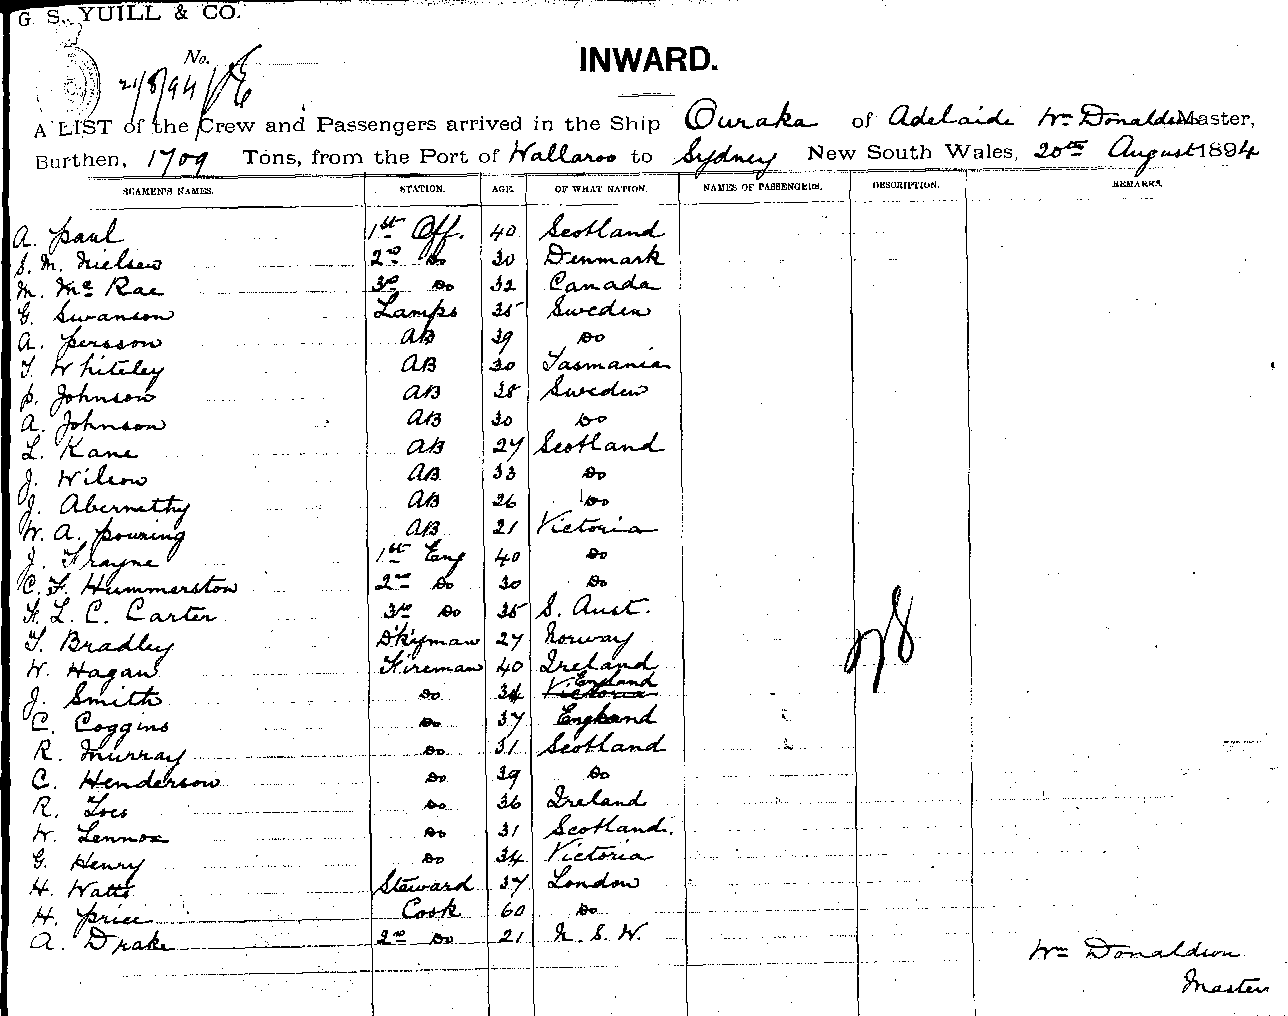 G. S. YUILL & CO.
No.
21/8/94
INWARD.
A LIST of the Crew and Passengers arrived in the Ship Ouraka of Adelaide Wm Donaldson Master,
Burthen, 1709 Tons, from the Port of Wallaroo to Sydney New South Wales, 20th August 1894
SEAMEN'S NAMES. STATION. AGE. OF WHAT NATION. NAMES OF PASSENGERS. DESCRIPTION. REMARKS.
A. Paul 1st Off. 40 Scotland
S. M. Nielsen 2nd Do 30 Denmark
M. McRae 3rd Do 32 Canada
G. Swanson Lamps 35 Sweden
A. Persson AB 39 Do
T. Whiteley AB 30 Tasmania
P. Johnson AB 38 Sweden
A. Johnson AB 30 Do
L. Kane AB 27 Scotland
J. Wilson AB 33 Do
J. Abernethy AB 26 Do
W. A. Pouring AB 21 Victoria
J. Trayne 1st Eng 40 Do
C. F. Hummerston 2nd Do 30 Do
F. L. C. Carter 3rd Do 35 S. Aust.
T. Bradley D'kyman 27 Norway
W. Hagan Fireman 40 Ireland
J. Smith Do 34 Victoria England
C. Coggins Do 37 England
R. Murray Do 31 Scotland
C. Henderson Do 39 Do
R. Do 36 Ireland
W. Lennox Do 31 Scotland.
G. Henry Do 34 Victoria
H. Watts Steward 37 London
H. Price Cook 60 Do
A. Drake 2nd Do 21 N. S. W.
Wm Donaldson
Master